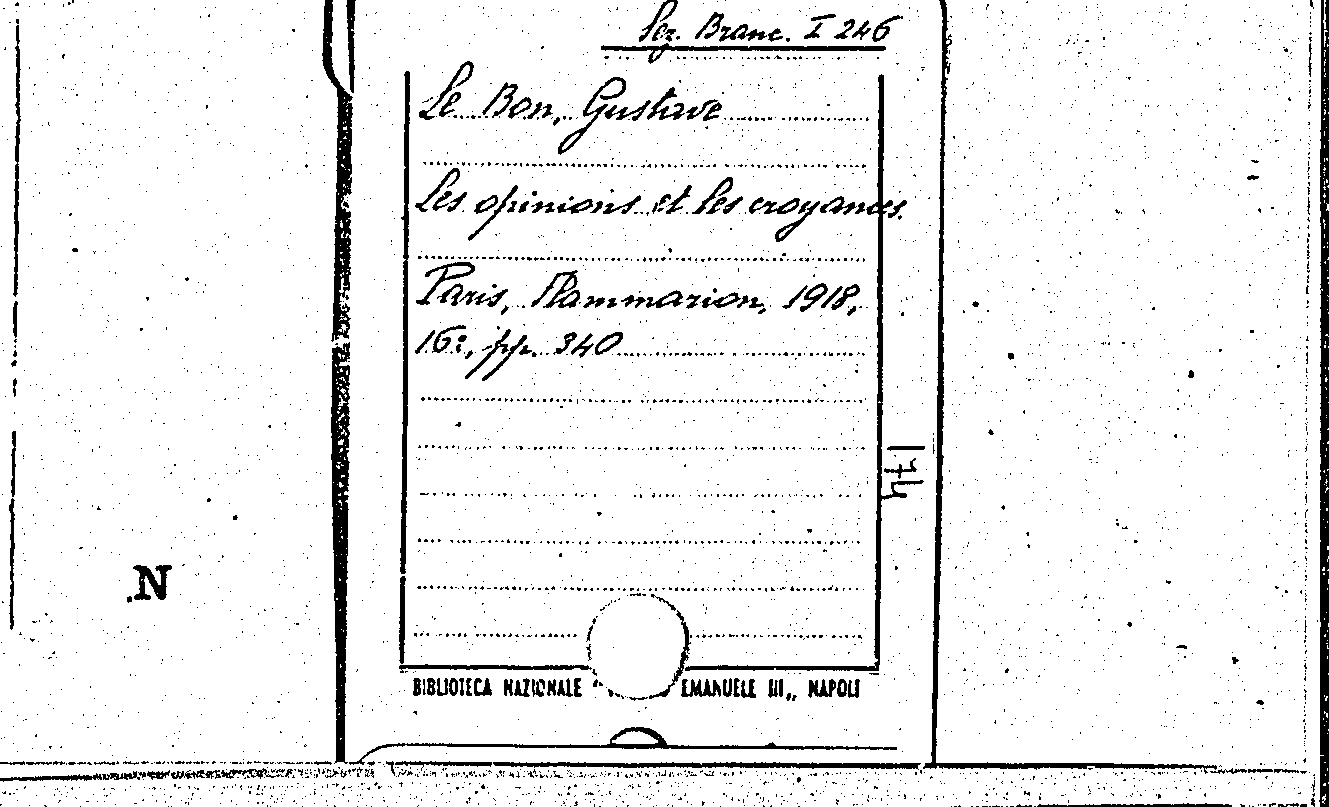 Sez. Branc. I 246
Le Bon, Gustave
Les opinions et les croyances.
Paris, Flammarion, 1918,
16º, pp. 340
174
.N
BIBLIOTECA NAZIONALE " EMANUELE III„ NAPOLI